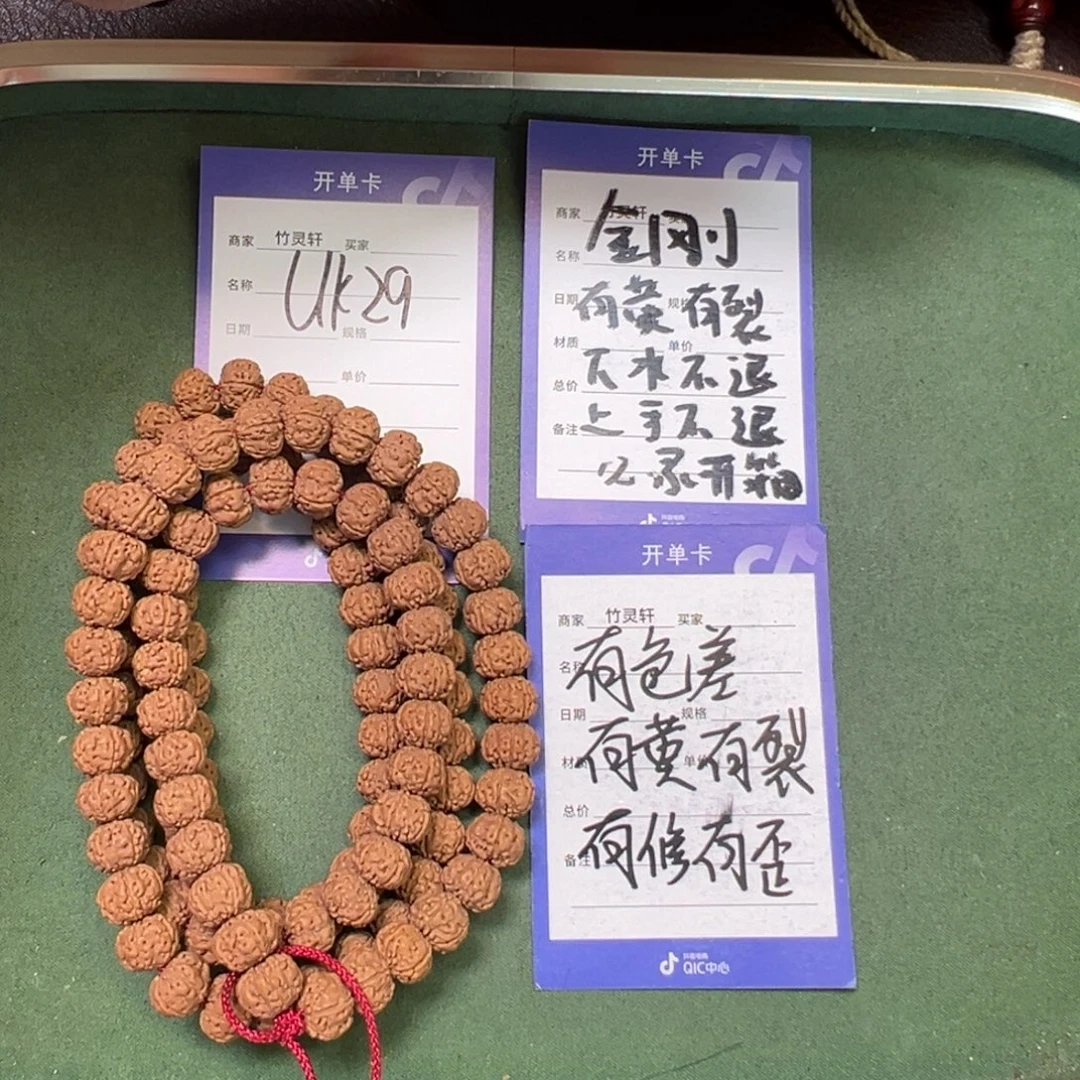 开单卡
商家 竹灵轩 买家
名称 Uk29
日期 规格
单价
开单卡
商家 竹灵轩
名称 金刚
日期 有黄 规格 有裂
材质 单价
总价 下水不退
备注 上手不退
必录开箱
抖音电商
开单卡
商家 竹灵轩 买家
名称 有色差
日期 规格
有黄有裂
总价
备注 有修有歪
抖音电商
QIC中心